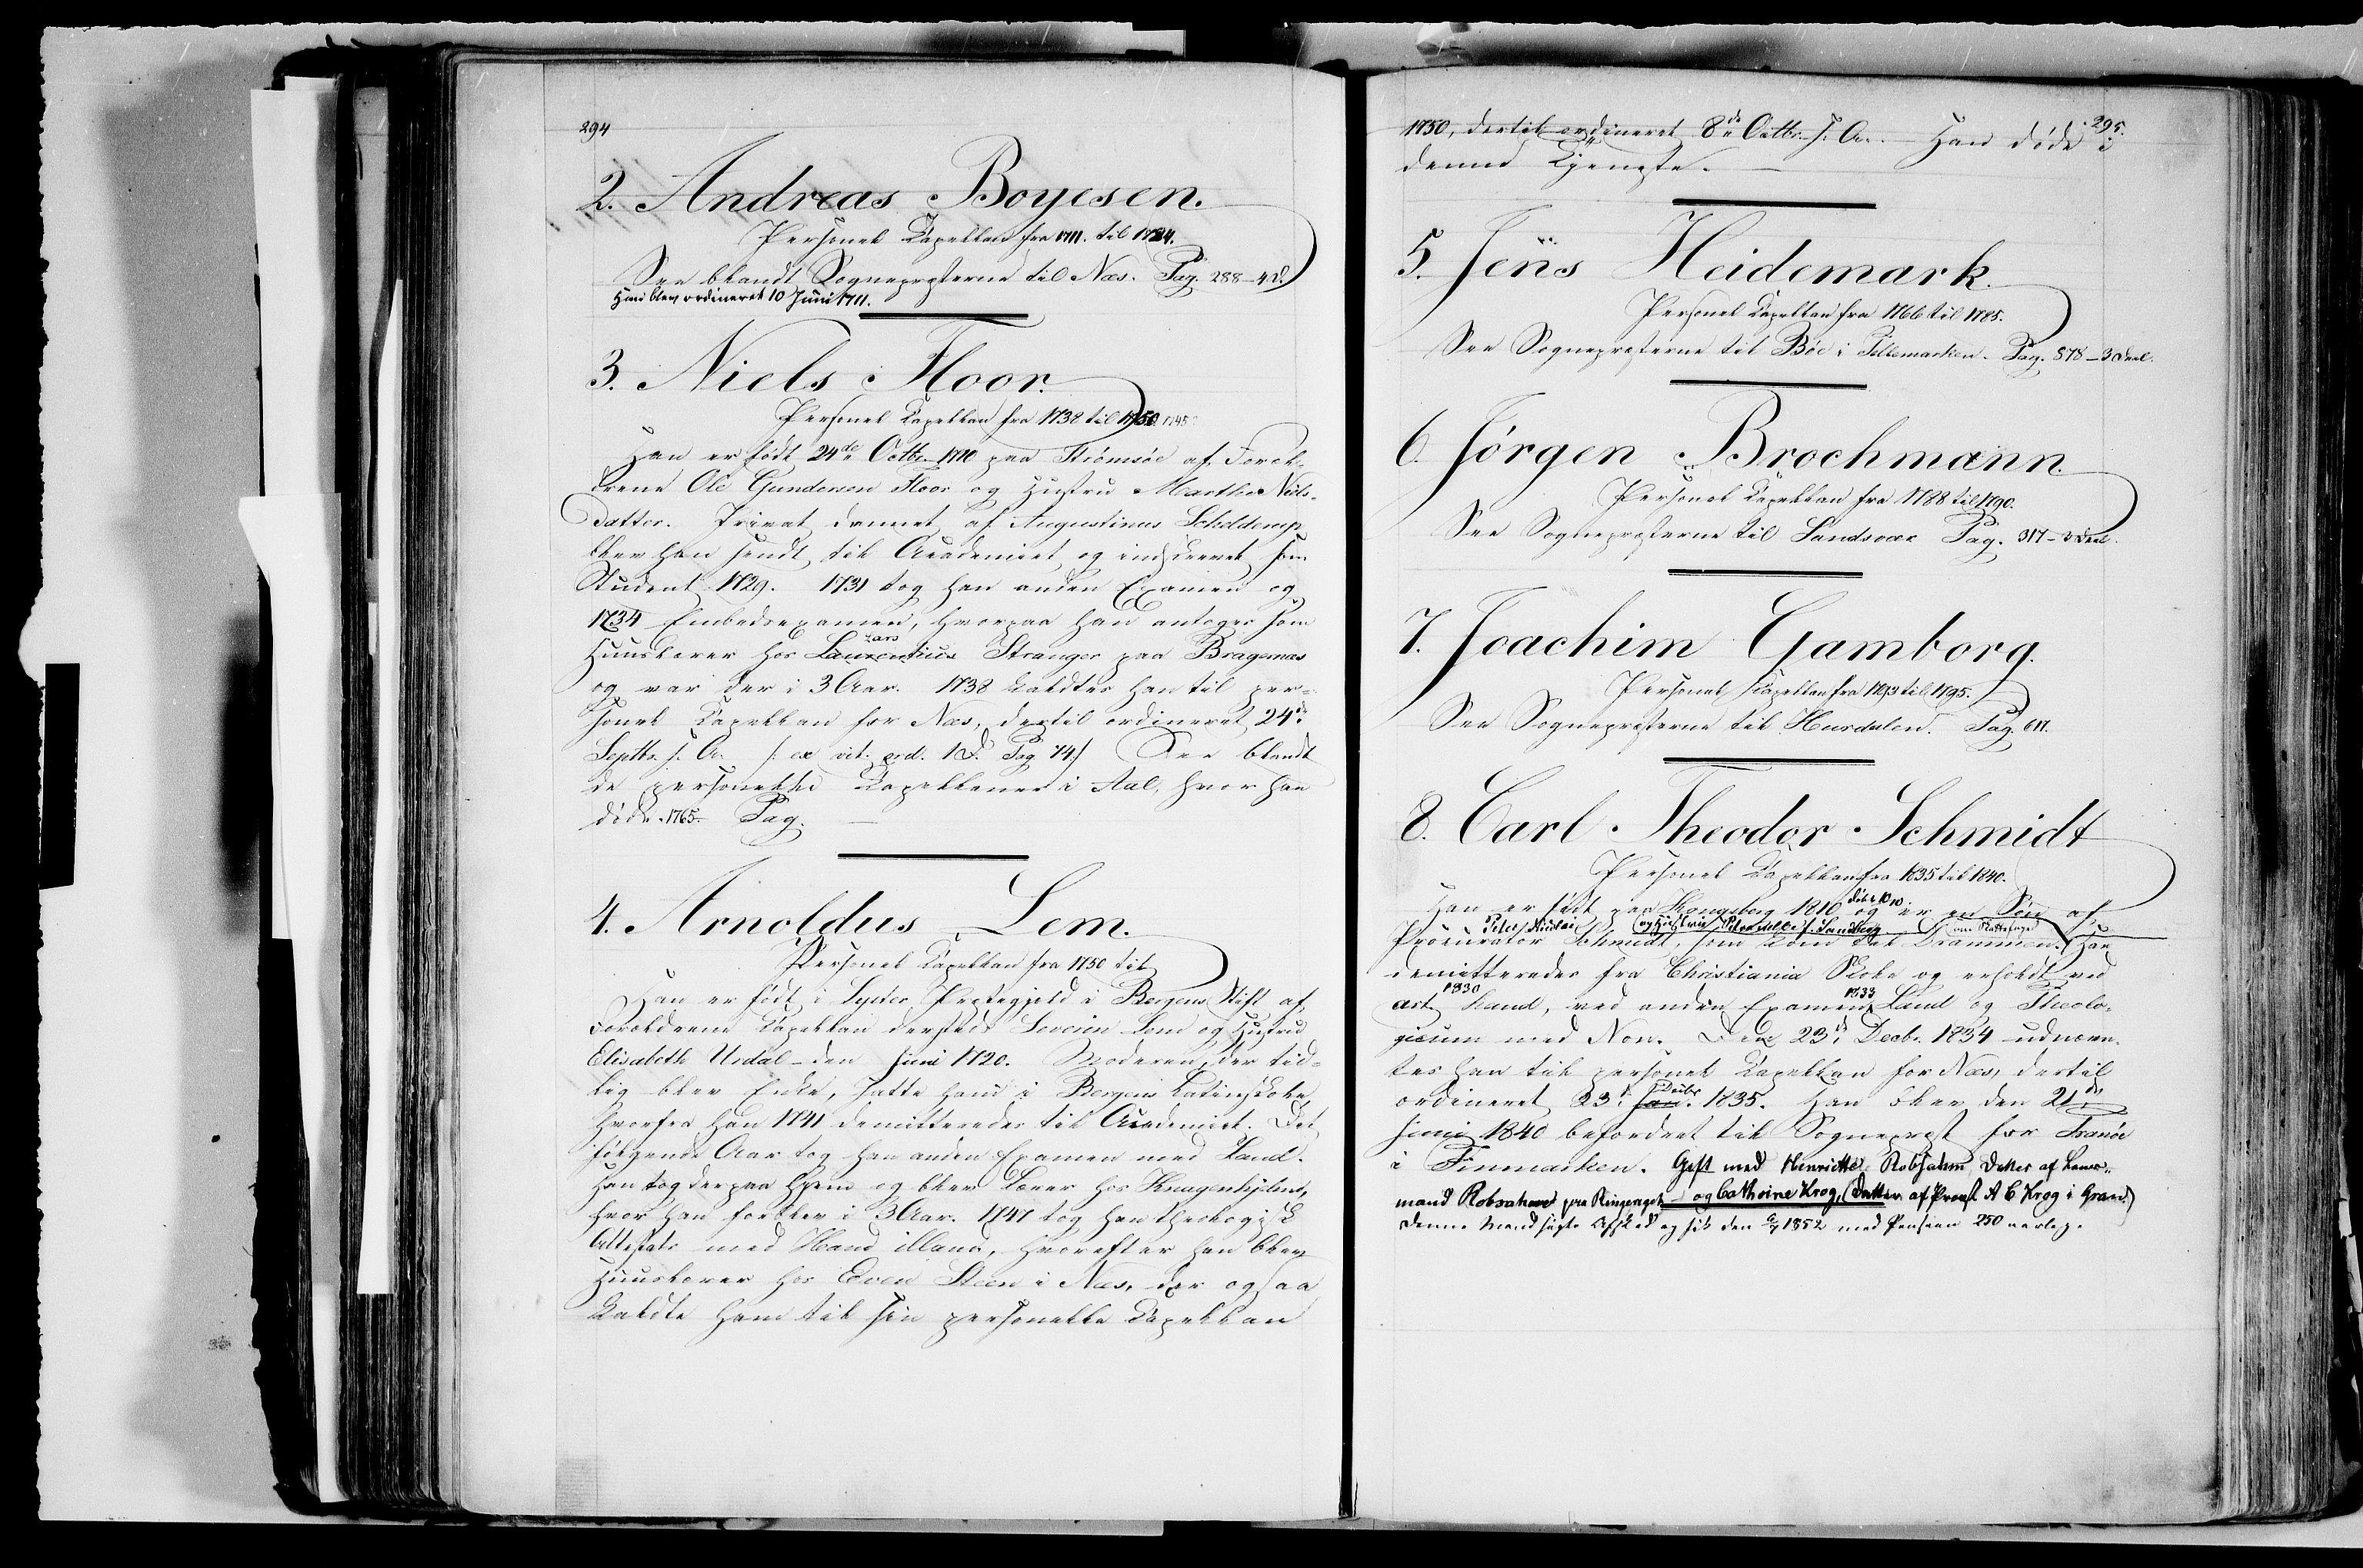 294
2. Andreas Boyesen.
Personel Capellan fra 1711. til 1724.
See blandt Sognepræsterne til Næs. Pag. 288 - 4 D.
Han blev ordineret 10 Juni 1711.
3. Niels Floor.
Personel Capellan fra 1738 til 1750 1745
Han er født 24de Octbr. 1710 paa Strømsöe af Forel-
drene Ole Gundersen Floor og Hustru Marthe Niels-
datter. Privat dannet af Augustinus Scheldemp
blev han sendt til Academiet og indskrevet som
Student 1729. 1731 tog han anden Examen og
1734 Embedsexamen, hvorpaa han antoges som
Huuslærer hos Laurentius Lars Stranger paa Bragernæs
og var der i 3 Aar. 1738 kaldtes han til per-
sonel Capellan for Næs, dertil ordineret 24de
Septbr. s. A. /: ex vit. ord. 1 D. Pag 74 :/ See blandt
de personelle Capellaner i Aal, hvor han
døde 1765. Pag.
4. Arnoldus Lem.
Personel Capellan fra 1750 til
Han er født i Lyster Præstegjeld i Bergens Stift af
Forældrene Capellan dersteds Severin Lem og Hustru
Elisabeth Urdal - den Juni 1720. Moderen, der tid-
lig blev Enke, satte ham i Bergens Latinskole,
hvorfra han 1741 demitteredes til Academiet. Det
følgende Aar tog han anden Examen med Laud.
Han tog derpaa hjem og blev Lærer hos Knagenhjelms,
hvor han forblev i 3 Aar. 1747 tog han theologisk
Attestats med Haud illaud, hvorefter han blev
Huuslærer hos Even Steen i Næs, der ogsaa
kaldte ham til sin personelle Capellan
295.
1750, dertil ordineret 8de Octbr. s. A. - Han døde i
denne Tjeneste. -
5. Jens Heidemark.
Personel Capellan fra 1766 til 1785.
See Sognepræsterne til Böe i Tellemarken. Pag. 878 - 3 Deel.
6. Jørgen Brochmann.
Personel Capellan fra 1788 til 1790.
See Sognepræsterne til Sandsvær Pag. 317 - 3 Deel.
7. Joachim Gamborg.
Personel Capellan fra 1793 til 1795.
See Sognepræsterne til Hurdalen. Pag. 617.
8. Carl Theodor Schmidt
Personel Capellan fra 1835 til 1840.
Han er født paa Kongsberg 1810 og er en Søn af
Procurator Peter Nicolai Schmidt, som kom til Drammen. Han
demitteredes fra Christiania Skole og erholdt ved
art. 1830 haud, ved anden Examen 1833 Laud og Theolo-
gicum med Non. Den 23de Decbr. 1834 udnævn-
tes han til personel Capellan for Næs, dertil
ordineret 23de Jan. Decbr 1835. Han blev den 21de
Juni 1840 befordret til Sognepræst for Tranöe
i Finmarken. Gift med Henriette Robsahm Datter af Lens-
mand Robsahm paa Ringeriget og Cathrine Krog, (Datter af Provst A C Krog i Gran.)
Denne Mand søgte Afsked og fik den 1852 med Pension 250 aarlig.